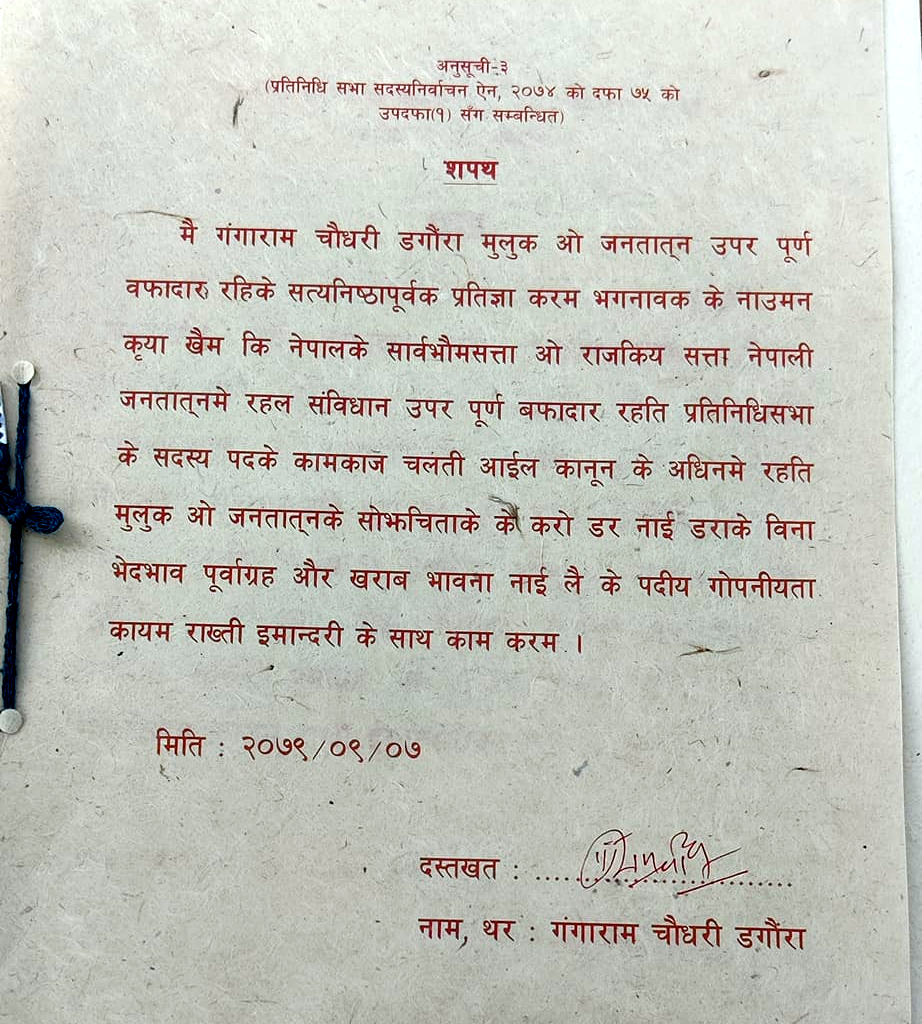 अनुसूची-३
(प्रतिनिधि सभा सदस्यनिर्वाचन ऐन, २०७४ को दफा ७५ को
उपदफा(१) सँग सम्बन्धित)
शपथ
मै गंगाराम चौधरी डगौंरा मुलुक ओ जनतात्‌न उपर पूर्ण
वफादार रहिके सत्यनिष्ठापूर्वक प्रतिज्ञा करम भगनावक के नाउमन
कृया खैम कि नेपालके सार्वभौमसत्ता ओ राजकिय सत्ता नेपाली
जनतात्‌नमे रहल संविधान उपर पूर्ण बफादार रहति प्रतिनिधिसभा
के सदस्य पदके कामकाज चलती आईल कानून के अधिनमे रहति
मुलुक ओ जनतात्‌नके सोझचिताके कै करो डर नाई डराके विना
भेदभाव पूर्वाग्रह और खराब भावना नाई लै के पदीय गोपनीयता
कायम राख्ती इमान्दरी के साथ काम करम ।
मिति : २०७९/०९/०७
दस्तखत : ....................
नाम, थर : गंगाराम चौधरी डगौंरा